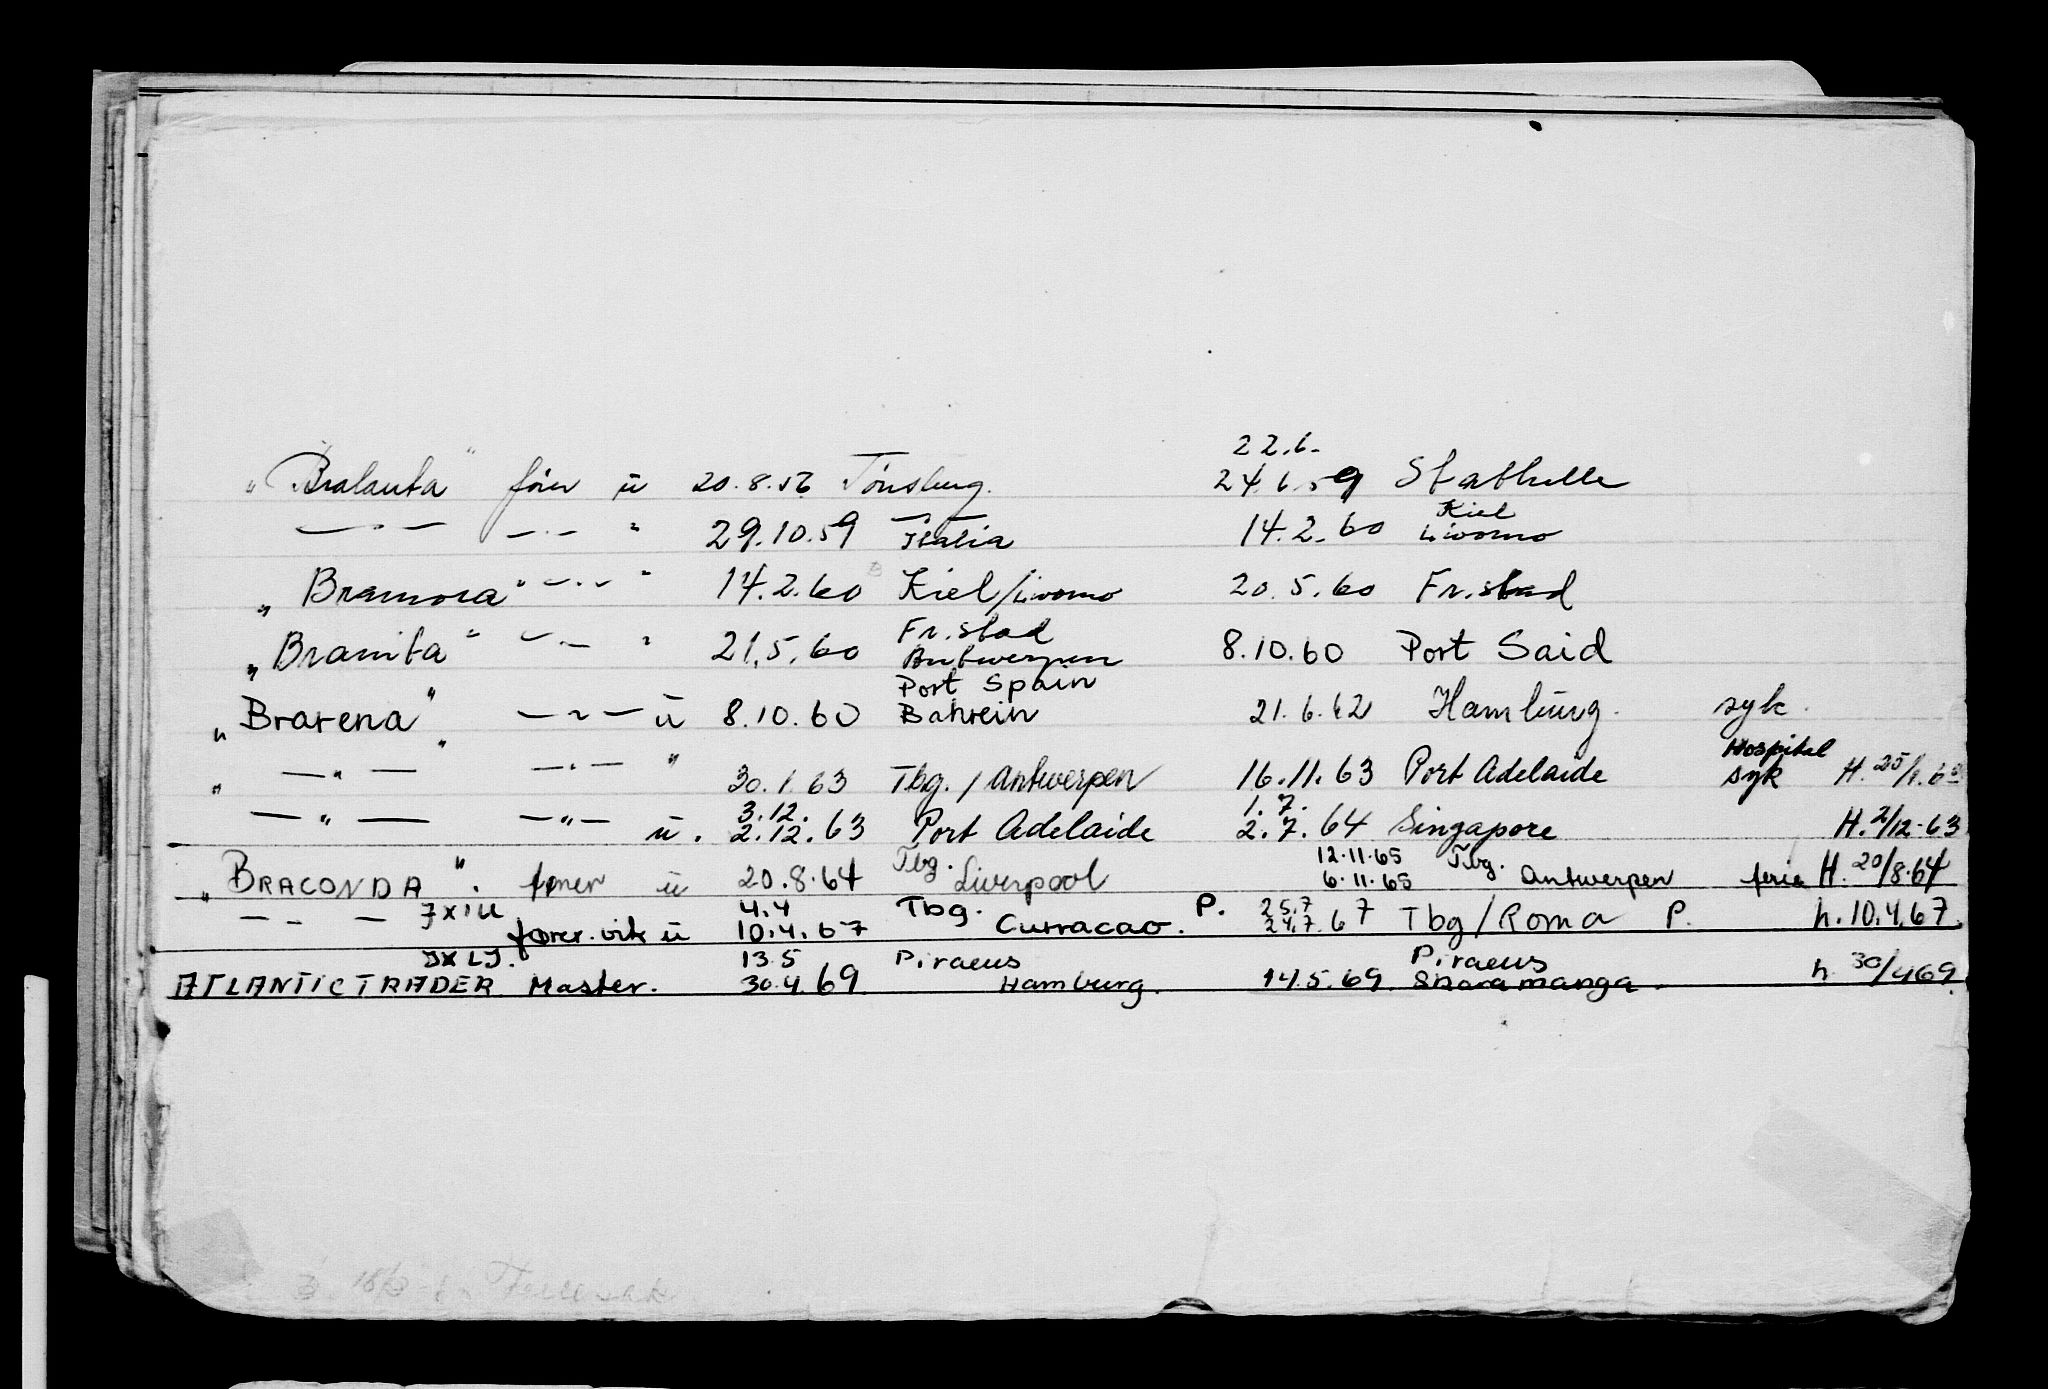 22.6.
"Bralanta" fører ü 20.8.56 Tönsberg. 24.6.59 Stathelle
— " — — " — " 29.10.59 Italia 14.2.60 Kiel Livorno
"Bramora" — " — " 14.2.60 Kiel/Livorno 20.5.60 Fr.stad
"Branita" — " — " 21.5.60 Fr.stad Antwerpen 8.10.60 Port Said
Port Spain
"Brarena" — " — ü 8.10.60 Bahrein 21.6.62 Hamburg. syk.
Hospital
" — " — " — " — " 30.1.63 Tbg. / Antwerpen 16.11.63 Port Adelaide syk H. 25/1.63
3.12. 1.7.
— " — — " — ü. 2.12.63 Port Adelaide 2.7.64 Singapore H. 2/12-63
12.11.65
"BRACONDA". fører ü 20.8.64 Tbg. Liverpool 6.11.65 Tbg. Antwerpen ferie H. 20/8.64
JXIU 4.4 Tbg. P. 25.7
— " — fører. vik ü 10.4.67 Curracao. 24.7.67 Tbg/Roma P. h. 10.4.67
JXLJ. 13.5 Piraeus Piraeus
ATLANTIC TRADER Master. 30.4.69 Hamburg. 14.5.69 Skaramanga. h. 30/469.